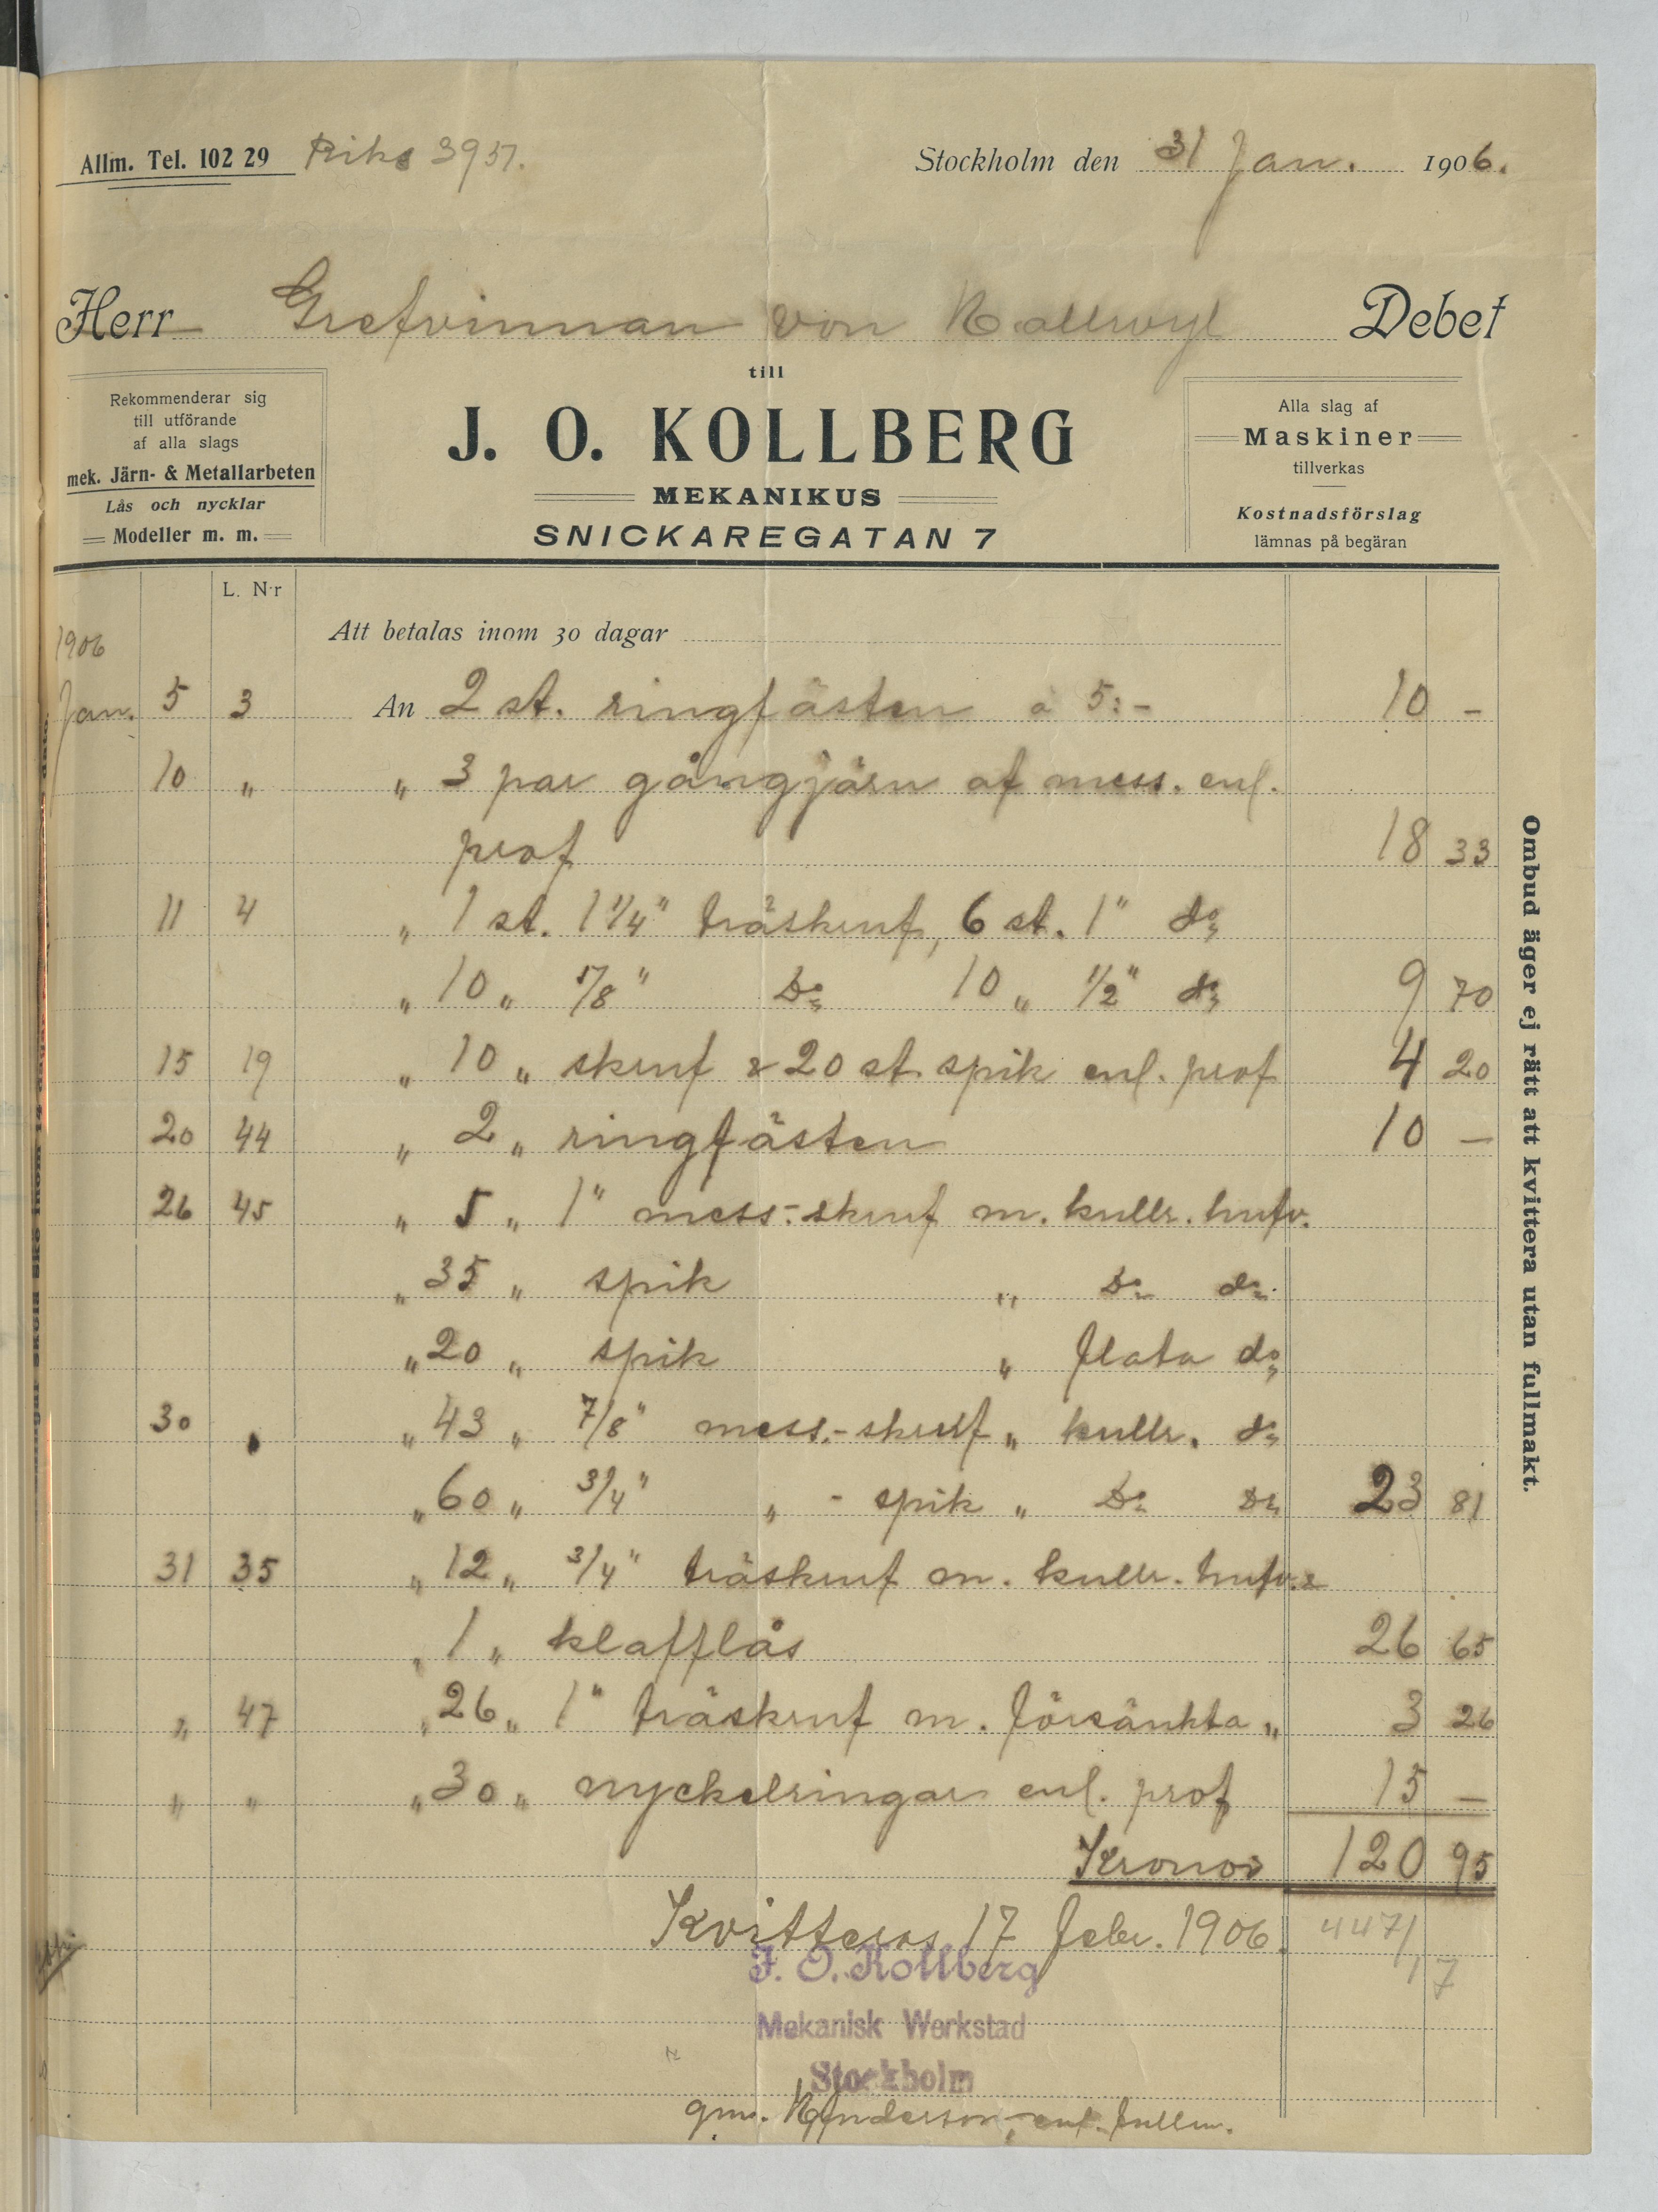 Allm. Tel. 102 29 Riks 3957.
Stockholm den 31 Jan. 1906.
Herr Grefvinnan von Hallwyl Debet
till
Rekommenderar sig
till utförande
af alla slags
mek. Järn- & Metallarbeten
Lås och nycklar
Modeller m. m.
J. O. KOLLBERG
MEKANIKUS
SNICKAREGATAN 7
Alla slag af
Maskiner
tillverkas
Kostnadsförslag
lämnas på begäran
L. N:r
1906 Att betalas inom 30 dagar
Jan. 5 3 An 2 st. ringfästen à 5:- 10 -
10 " " 3 par gångjärn af mess. enl.
prof 18 33
11 4 " 1 st. 1 1/4" träskruf, 6 st. 1" do
" 10 " 7/8" Do 10 " 1/2" do 9 70
15 19 " 10 " skruf & 20 st spik enl. prof 4 20
20 44 " 2 " ringfästen 10 -
26 45 " 5 " 1" mess.-skruf m. kullr. hufv.
" 35 " spik " Do do
" 20 " spik " flata do
30 " 43 " 7/8" mess.-skruf " kullr. do
" 60 " 3/4" " - spik " Do Do 23 81
31 35 " 12 " 3/4" träskruf m. kullr. hufv. &
" 1 " klafflås 26 65
" 47 " 26 " 1" träskruf m. försänkta " 3 26
" " " 30 " nyckelringar enl. prof 15 -
Kronor 120 95
Kvitteras 17 febr. 1906. 447/17
J. O. Kollberg
Mekanisk Werkstad
Stockholm
gm. Anderson enl. fullm.
Ombud äger ej rätt att kvittera utan fullmakt.